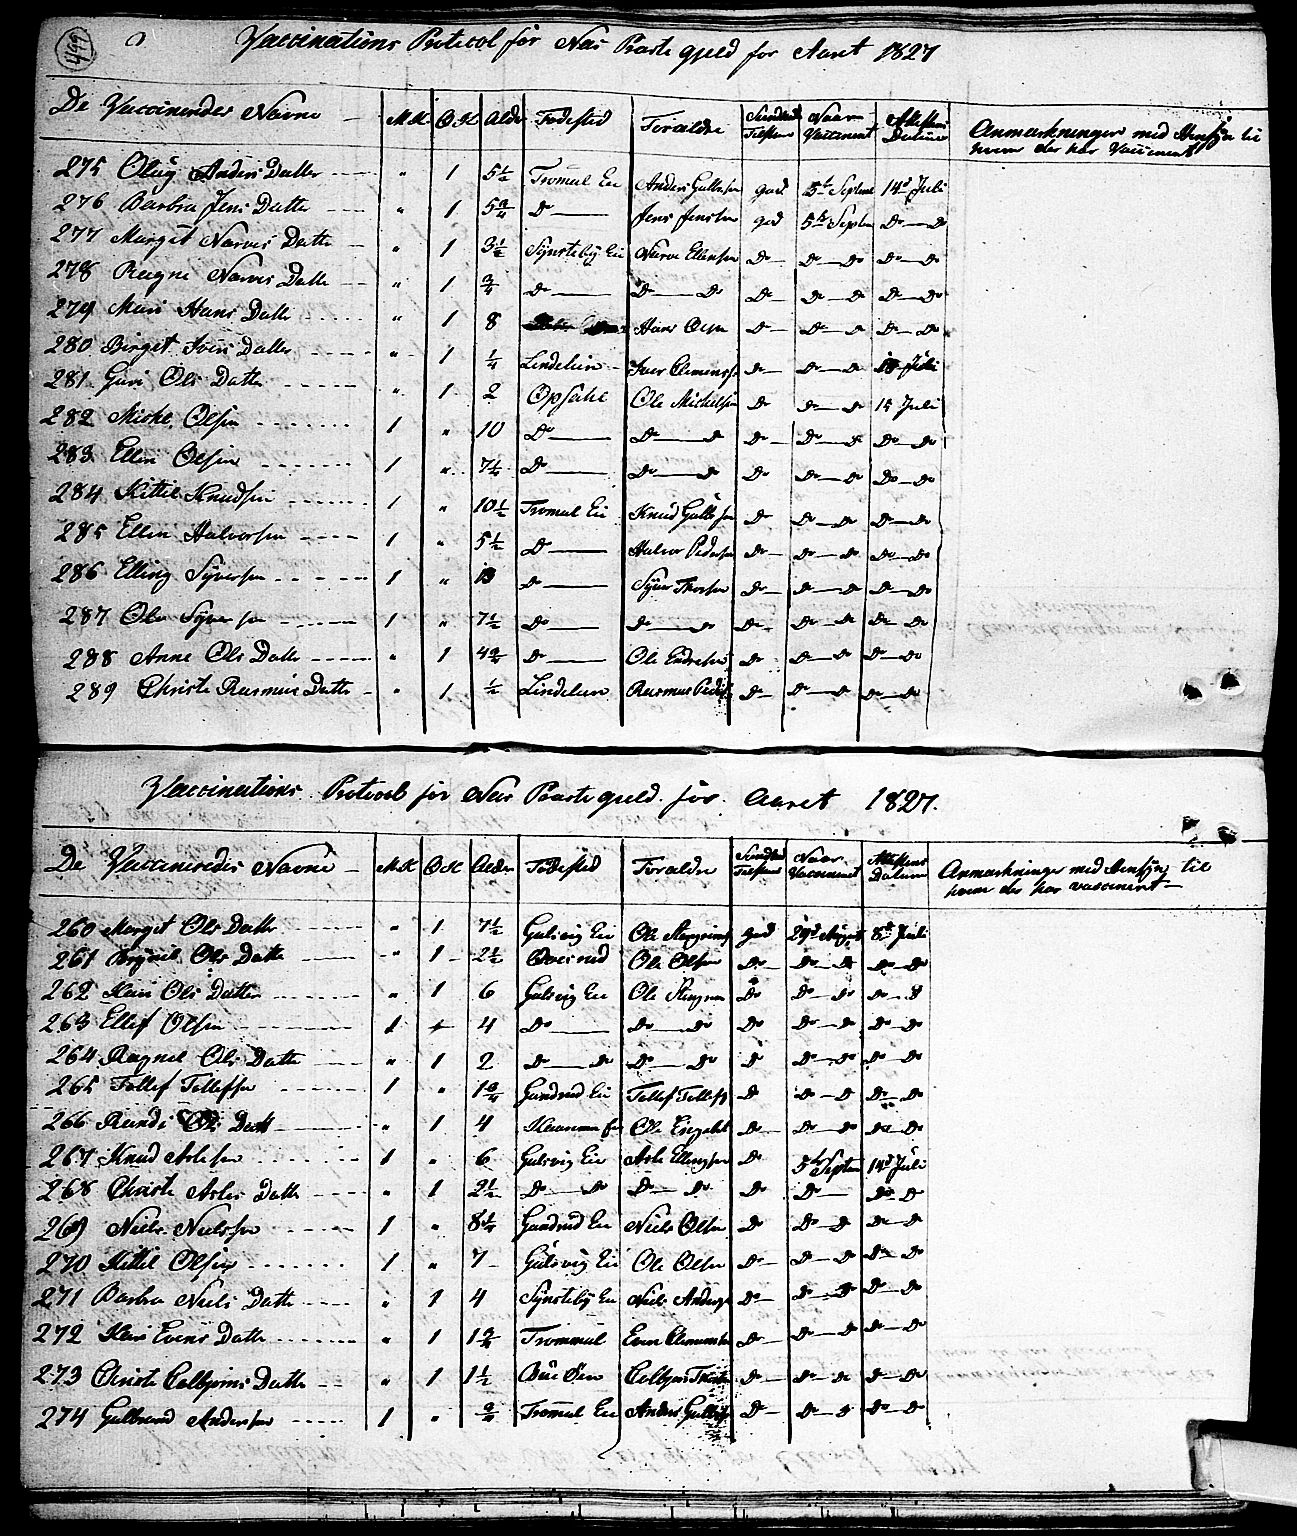 499
Vaccinations Protocol for Næs Præstegjeld for Aaret 1827
De Vaccineredes Navne M.K Q.K Alder Fødested Forældre Sundheds Tilstand Naar Vaccineret Attestens Datum Anmærkninger med Hensÿn til
hvem der har Vaccineret
275 Olug Anders Datter " 1 5½ Tromal Eie Anders Gulbrsen god 5te Septemb 14d Juli
276 Barbra Jens Datter " 1 5¾ Do Jens Jensen god 5te Septem Do Do
277 Margit Narves Datter " 1 3½ Sÿnstebÿ Eie Narve Ellensen Do Do Do Do Do
278 Ragne Narves Datter " 1 ¾ Do Do Do Do Do Do Do Do
279 Mari Hans Datter " 1 8 Hans Olsen Do Do Do Do Do
280 Birget Ivers Datter " 1 ¼ Lindelien Iver Clemens Do Do Do Juli
281 Guri Ols Datter " 1 2 Opsahl Ole Michelsen Do Do Do 14 Juli
282 Michel Olsen 1 " 10 Do Do Do Do Do Do Do Do
283 Ellen Olsen 1 " 7½ Do Do Do Do Do Do Do Do
284 Kittil Knudsen 1 " 10½ Tromal Eie Knud Gulbrsen Do Do Do Do Do
285 Ellen Halvorsen 1 " 5½ Do Halvor Pedersen Do Do Do Do Do
286 Elling Sÿversen 1 " 13 Do Sÿver Thorsen Do Do Do Do Do
287 Ole Sÿversen 1 " 7½ Do Do Do Do Do Do Do Do
288 Anne Ols Datter " 1 4¾ Do Ole Endresen Do Do Do Do Do
289 Christi Rasmus Datter " 1 ½ Lindelien Rasmus Peders Do Do Do Do Do
Vaccinations Protocol for Næs Præstegjeld for Aaret 1827.
De Vaccineredes Navne M.K Q.K Alder Fødested Forældre Sundheds Tilstand Naar Vaccineret Attestens Datum Anmærkninger med Hensÿn til
hvem der har vaccineret
260 Margit Ols Datter " 1 7½ Gulsvig Eie Ole god 29d August 8d Juli
261 Ols Datter " 1 2½ Ole Olsen Do Do Do Do Do
262 Kari Ols Datter " 1 6 Gulsvig Eie Ole Do Do Do Do
263 Ellef Olsen 1 4 Do Do Do Do Do Do Do Do
264 Ragnil Ols Datter " 1 2 Do Do Do Do Do Do Do Do Do
265 Tollef Tollefsen 1 " 1¾ Gundrud Eie Tollef Tollefs Do Do Do Do
266 Randi Ols Datt " 1 4 Ole Engebret Do Do Do Do Do
267 Knud Aslesen 1 " 6 Gulsvig Eie Asle Ellingsen Do 5te Septem 14d Juli
268 Christi Asles Datter " 1 2½ Do Do Do Do Do Do Do Do
269 Niels Nielssen 1 " 8¼ Gundrud Eie Niels Olsen Do Do Do Do Do
270 Kittil Olsen 1 " 7 Gulsvig Eie Ole Olsen Do Do Do Do Do
271 Barbra Niels Datter " 1 4 Sÿnstebÿ Eie Niels Anders Do Do Do Do Do
272 Kari Evens Datter " 1 1¾ Trommal Even Clemensen Do Do Do Do Do
273 Christi Colbjørns Datter " 1 1½ Bue Øen Colbjørn Do Do Do Do Do
274 Gulbrand Andersen 1 " ¾ Tromal Eie Anders Gulbrs Do Do Do Do Do